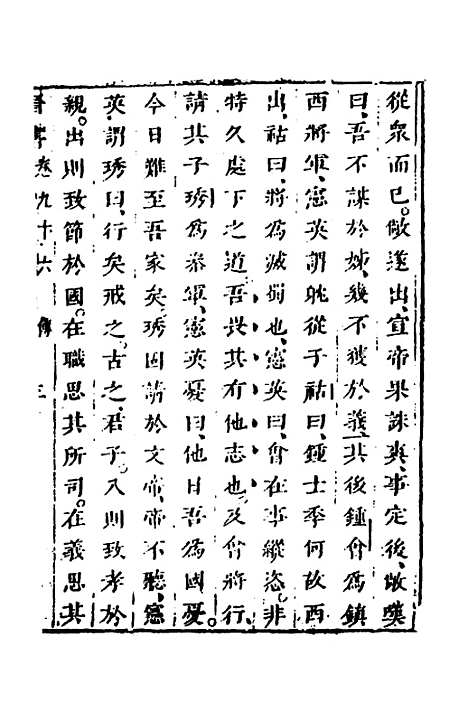 從衆而已。敞遂出、宣帝果誅爽、事定後、敞嘆
曰、吾不謀於姊、幾不獲於義、其後鍾會爲鎮
西將軍、憲英謂耽從子祜曰、鍾士季何故西
出、祜曰、將爲滅蜀也、憲英曰、會在事縱恣。非
特久處下之道、吾畏其有他志也、及會將行、
請其子琇爲參軍、憲英憂曰、他日吾爲國憂。
今日難至吾家矣、琇固請於文帝、帝不聽、憲
英謂琇曰、行矣戒之。古之君子。入則致孝於
親。出則致節於國。在職思其所司。在義思其
晉書卷九十六 傳 三